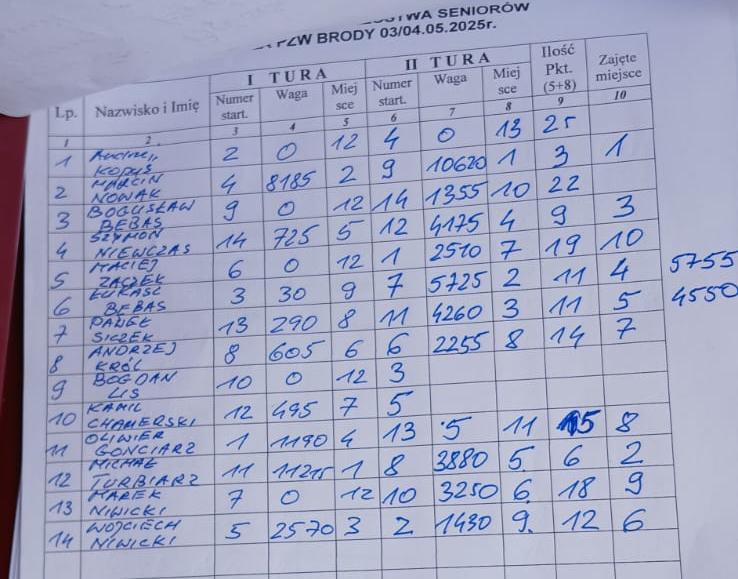 TWA SENIORÓW
PZW BRODY 03/04.05.2025r.
Lp. Nazwisko i Imię I TURA II TURA Ilość Pkt. (5+8) Zajęte miejsce
Numer start. Waga Miej sce Numer start. Waga Miej sce
1 2 3 4 5 6 7 8 9 10
1 KOPUŚ 2 0 12 4 0 13 25
2 MARCIN NOWAK 4 8185 2 9 10620 1 3 1
3 BOGUSŁAW BEBAS 9 0 12 14 1355 10 22
4 SZYMON NIEWCZAS 14 725 5 12 4175 4 9 3
5 MACIEJ ZĄCZEK 6 0 12 1 2510 7 19 10
6 ŁUKASZ BEBAS 3 30 9 7 5725 2 11 4 5755
7 PAWEŁ SICZEK 13 290 8 11 4260 3 11 5 4550
8 ANDRZEJ KRÓL 8 605 6 6 2255 8 14 7
9 BOGDAN LIS 10 0 12 3
10 KAMIL CHAMERSKI 12 495 7 5
11 OLIWIER GONCIARZ 1 1190 4 13 5 11 15 8
12 MICHAŁ TURBIARZ 11 11215 1 8 3880 5 6 2
13 MAREK NIWICKI 7 0 12 10 3250 6 18 9
14 WOJCIECH NIWICKI 5 2570 3 2 1430 9 12 6